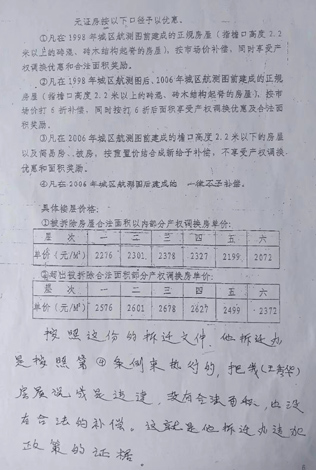 无证房按以下口径予以优惠。
①凡在1998年城区航测图前建成的正规房屋（指檐口高度2.2
米以上的砖混、砖木结构起脊的房屋），按市场价补偿，同时享受产
权调换优惠和合法面积奖励。
②凡在1998年城区航测图后、2006年城区航测图前建成的正规
房屋（指檐口高度2.2米以上的砖混、砖木结构起脊的房屋），按市
场价打6折补偿，同时按打6折后面积享受产权调换优惠及合法面
积奖励。
③凡在2006年城区航测图前建成的檐口高度2.2米以下的房屋
以及简易房、披房，按重置价结合成新给予补偿，不享受产权调换
优惠和面积奖励。
④凡在2006年城区航测图后建成的一律不予补偿。
具体楼层价格：
①被拆除房屋合法面积以内部分产权调换房单价：
层 次 一 二 三 四 五 六
单价（元/M²） 2276 2301 2378 2327 2199 2072
②超出被拆除合法面积部分产权调换房单价：
层 次 一 二 三 四 五 六
单价（元/M²） 2576 2601 2678 2627 2499 2372
按照这份的拆迁文件，他拆迁办
是按照第④条例来执行的，把我
房屋说成是违建，没有合法面积，也没
有合法的补偿。这就是他拆迁办违犯
政策的证据